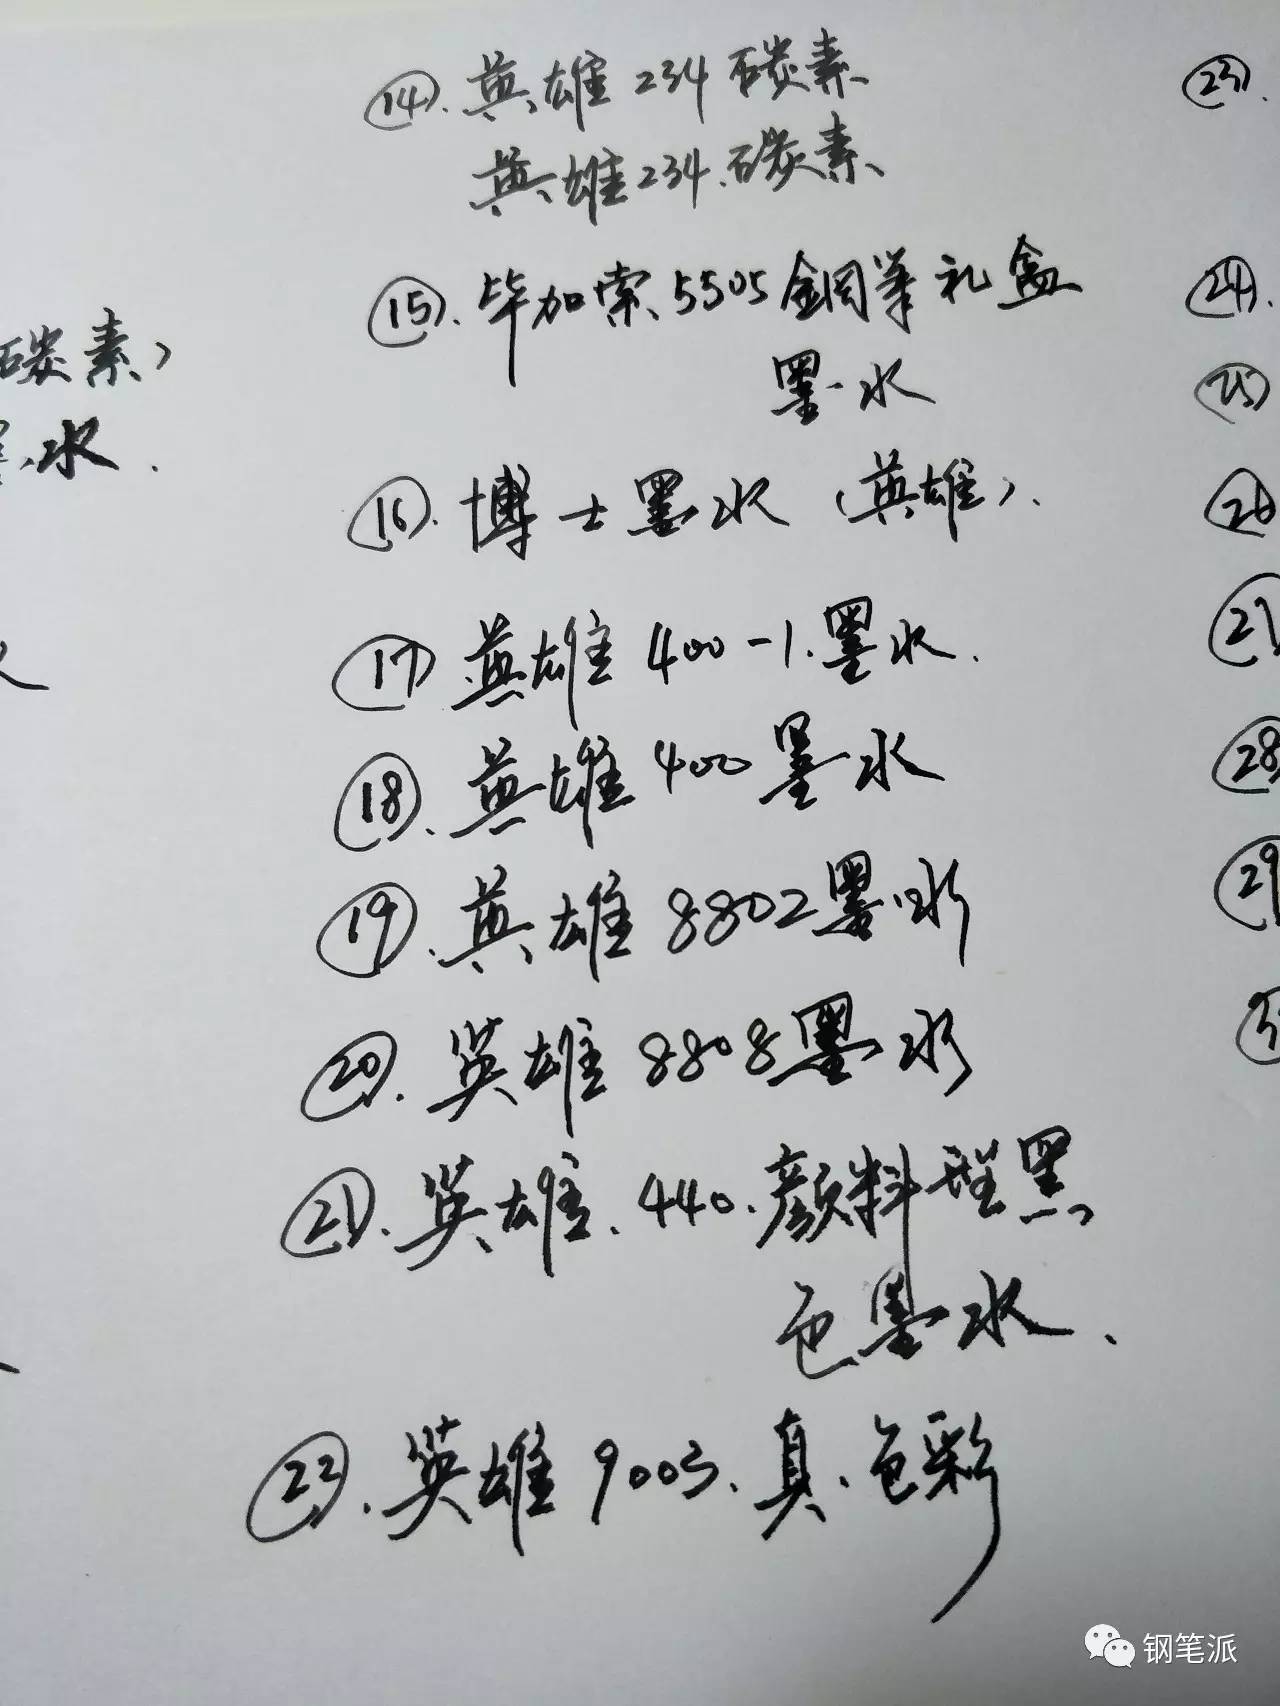 碳素）
墨水.
⑭. 英雄 234 碳素
英雄234.碳素.
⑮. 毕加索5505钢笔礼盒
墨水
⑯. 博士墨水（英雄）.
⑰ 英雄 400-1.墨水.
⑱. 英雄 400墨水
⑲. 英雄 8802墨水
⑳. 英雄 8808墨水
㉑. 英雄. 440. 颜料型黑
色墨水.
㉒. 英雄 9003. 真.色彩
㉓.
㉔.
㉕
㉖
㉗
㉘
㉙
钢笔派